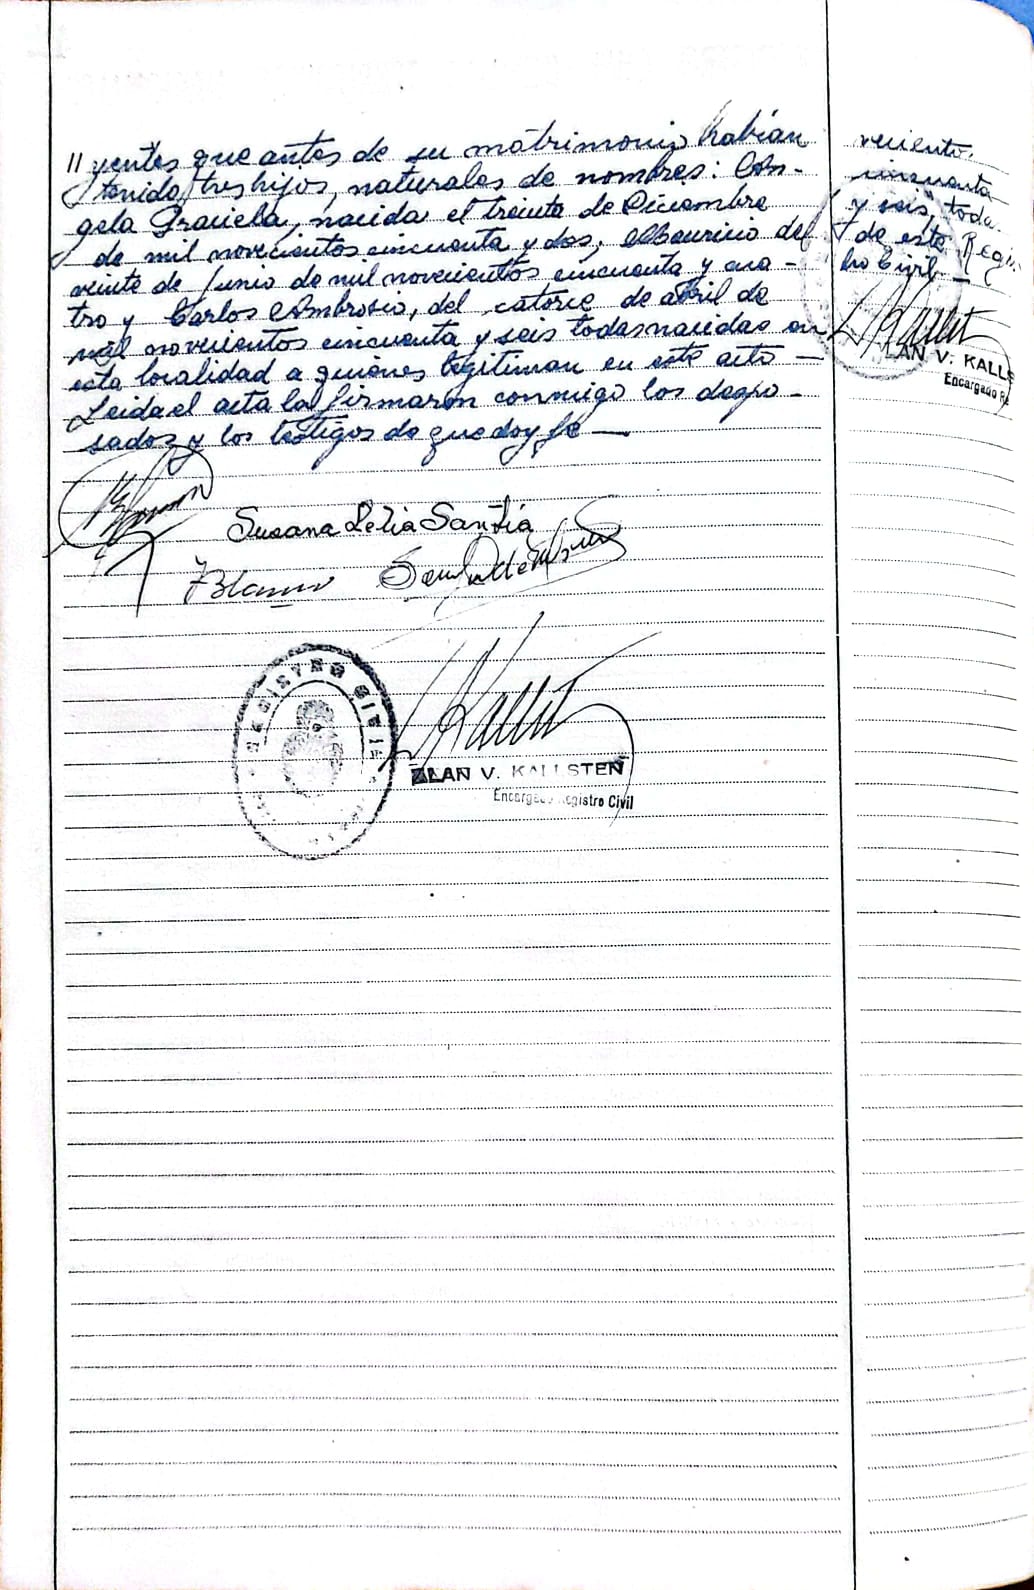 // yentes que antes de su matrimonio habian
tenido tres hijos, naturales de nombres: An-
gela Graciela, nacida el treinta de Diciembre
de mil novecientos cincuenta y dos, Mauricio del
veinte de Junio de mil novecientos cincuenta y cua-
tro y Carlos Ambrosio, del catorce de abril de
mil novecientos cincuenta y seis todas nacidas en
esta localidad a quienes legitiman en este acto —
Leida el acta la firmaron conmigo los despo-
sados y los testigos de que doy fé —
Susana Lelia Santia
Blanco
REGISTRO CIVIL
ALAN V. KALLSTEN
Encargado Registro Civil
veciento.
cincuenta
y seis, toda.
de este Regis
tro Civil —
LAN V. KALLS
Encargado Re